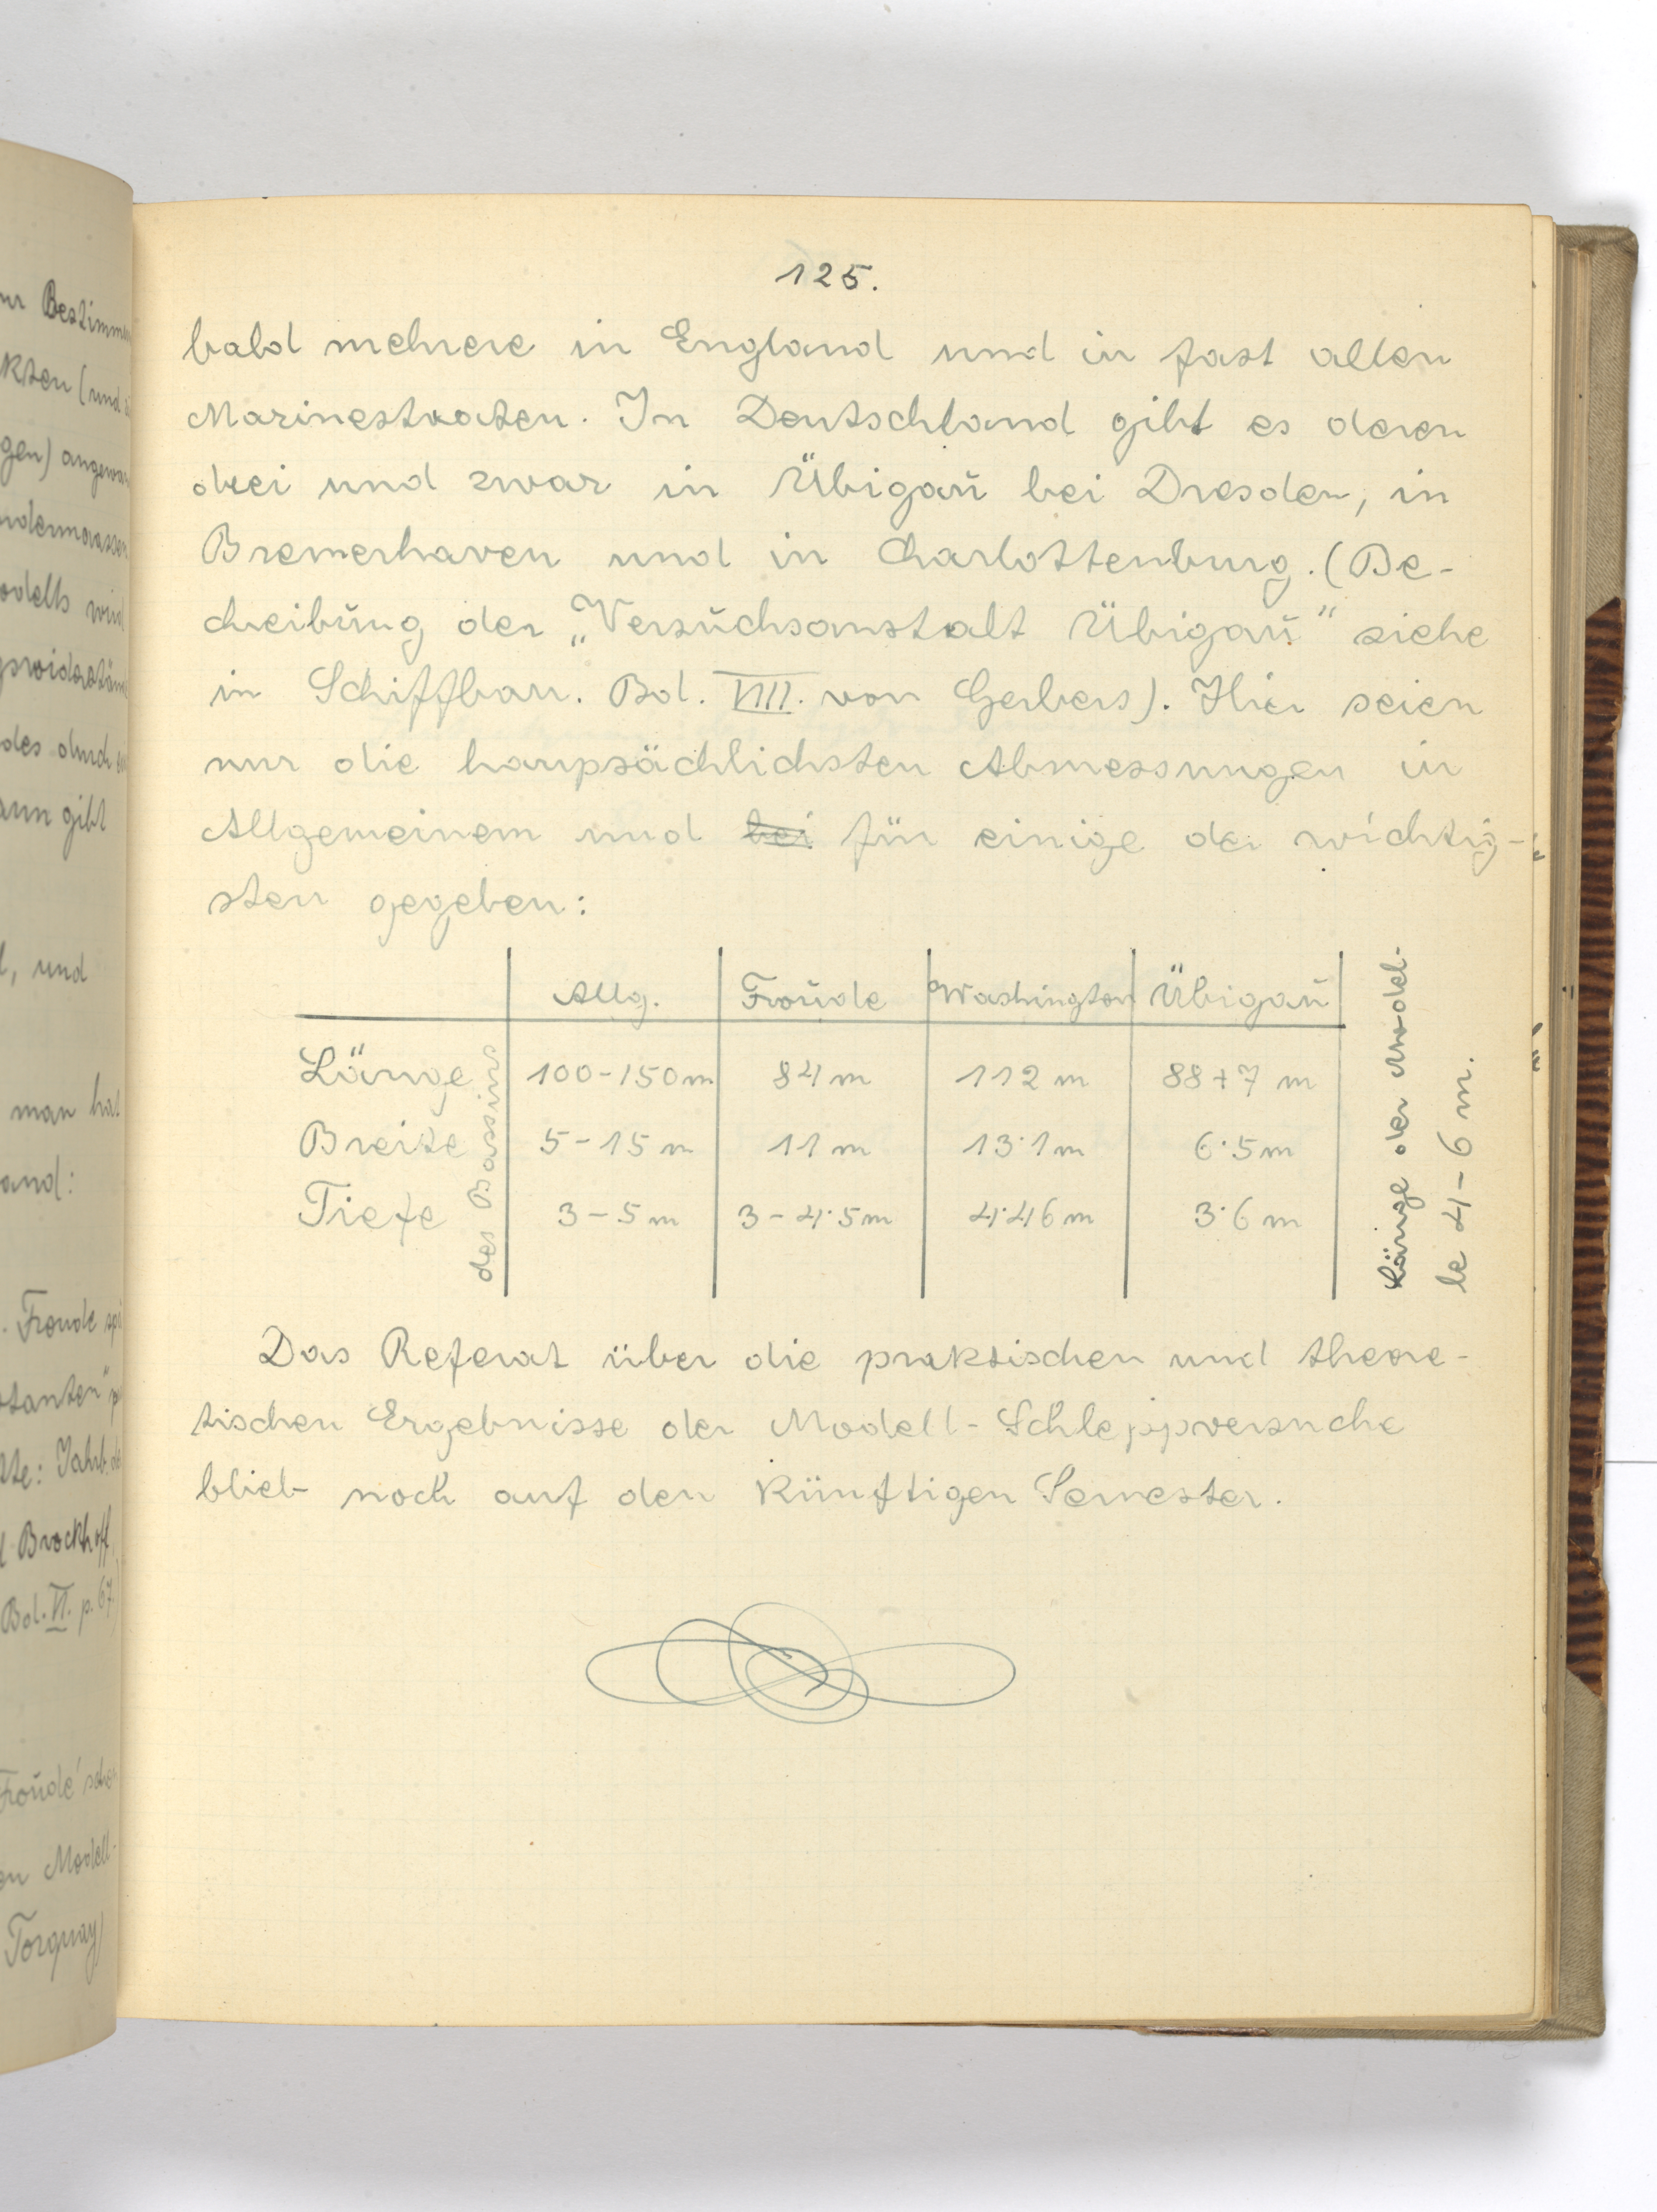 125.
bald mehrere in England und in fast allen
Marinestaaten. In Deutschland gibt es deren
drei und zwar in Übigaŭ bei Dresden, in
Bremerhaven und in Charlottenburg. (Be-
chreibŭng der „Versŭchsanstalt Übigaŭ" siehe
in Schiffbau. Bd. VIII. von Gerbers). Hier seien
nur die haupsächlichsten Abmessungen in
Allgemeinem und bei für einige der wichtig-
sten gegeben:
Allg. Froŭde Washington Übigaŭ
Länge 100-150m 84 m 112 m 88+7 m
Breite 5-15 m 11 m 13·1m 6·5m
Tiefe 3-5 m 3-4·5m 4·46 m 3·6 m
des Bassins
Länge der Model-
le 4-6 m.
Das Referat über die praktischen und theore-
tischen Ergebnisse der Modell-Schleppversuche
blieb noch auf den künftigen Semester.
ur Bestimm
kten (und
gen)
odells wird
des durch
ann gibt
l, und
man hat
and:
. Froude
stanten"
Brockhoff
Bd. VI. p. 67.
Froŭde'schen
en Modell-
Torquay)